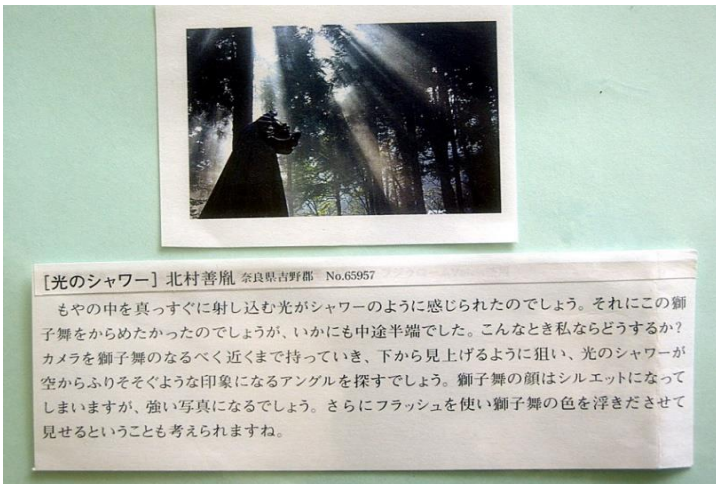 [光のシャワー] 北村善胤 奈良県吉野郡 No.65957
もやの中を真っすぐに射し込む光がシャワーのように感じられたのでしょう。それにこの獅
子舞をからめたかったのでしょうが、いかにも中途半端でした。こんなとき私ならどうするか?
カメラを獅子舞のなるべく近くまで持っていき、下から見上げるように狙い、光のシャワーが
空からふりそそぐような印象になるアングルを探すでしょう。獅子舞の顔はシルエットになって
しまいますが、強い写真になるでしょう。さらにフラッシュを使い獅子舞の色を浮きださせて
見せるということも考えられますね。